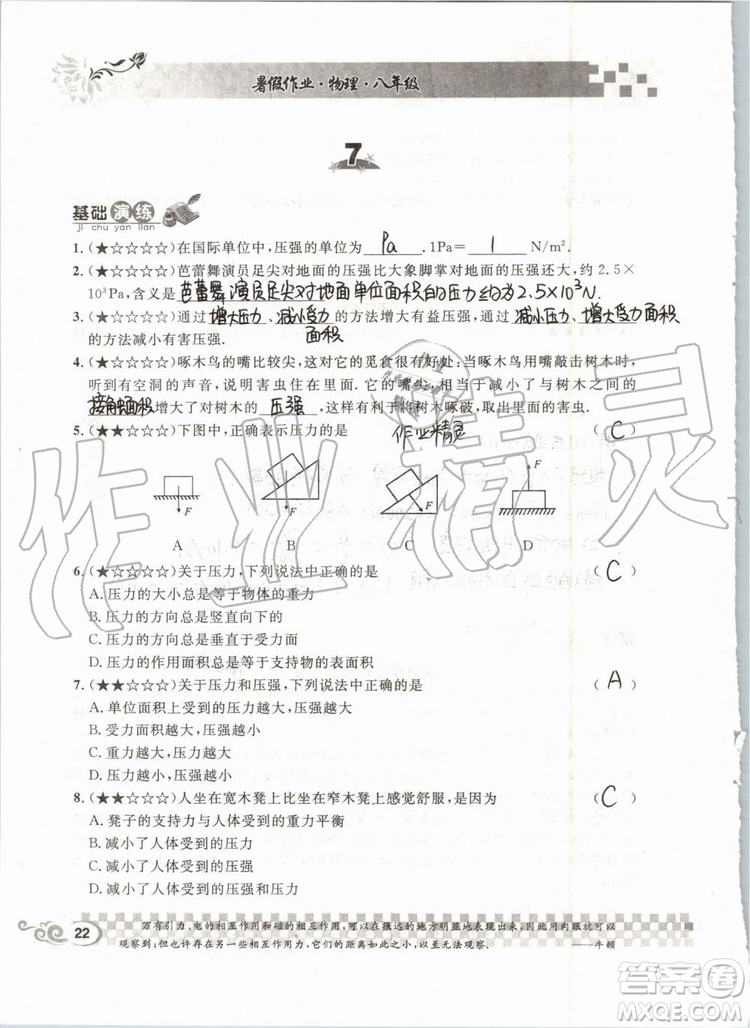 暑假作业·物理·八年级
7
基础演练
ji chu yan lian
1.(★☆☆☆☆)在国际单位中,压强的单位为 Pa .1Pa= 1 N/m².
2.(★☆☆☆☆)芭蕾舞演员足尖对地面的压强比大象脚掌对地面的压强还大,约2.5×
10³Pa,含义是芭蕾舞演员足尖对地面单位面积的压力约为2.5×10³N
3.(★☆☆☆☆)通过增大压力、减小受力面积的方法增大有益压强,通过减小压力、增大受力面积
的方法减小有害压强.
4.(★☆☆☆☆)啄木鸟的嘴比较尖,这对它的觅食有很有好处:当啄木鸟用嘴敲击树木时,
听到有空洞的声音,说明害虫住在里面.它的嘴尖,相当于减小了与树木之间的
接触面积增大了对树木的 压强 ,这样有利于将树木啄破,取出里面的害虫.
5.(★★☆☆☆)下图中,正确表示压力的是 ( C )
作业精灵
F F F F
A B C D
6.(★★☆☆☆)关于压力,下列说法中正确的是 ( C )
A.压力的大小总是等于物体的重力
B.压力的方向总是竖直向下的
C.压力的方向总是垂直于受力面
D.压力的作用面积总是等于支持物的表面积
7.(★★☆☆☆)关于压力和压强,下列说法中正确的是 ( A )
A.单位面积上受到的压力越大,压强越大
B.受力面积越大,压强越小
C.重力越大,压力越大
D.压力越大,压强越大
8.(★★☆☆☆)人坐在宽木凳上比坐在窄木凳上感觉舒服,是因为 ( C )
A.凳子的支持力与人体受到的重力平衡
B.减小了人体受到的压力
C.减小了人体受到的压强
D.减小了人体受到的重力
22
万有引力、电的相互作用和磁的相互作用,可以在很远的地方明显地表现出来,因此用肉眼就可以
观察到;但也许存在另一些相互作用力,它们的距离如此之小,以至无法观察. ——牛顿
作业精灵
答案圈
MXQE.COM